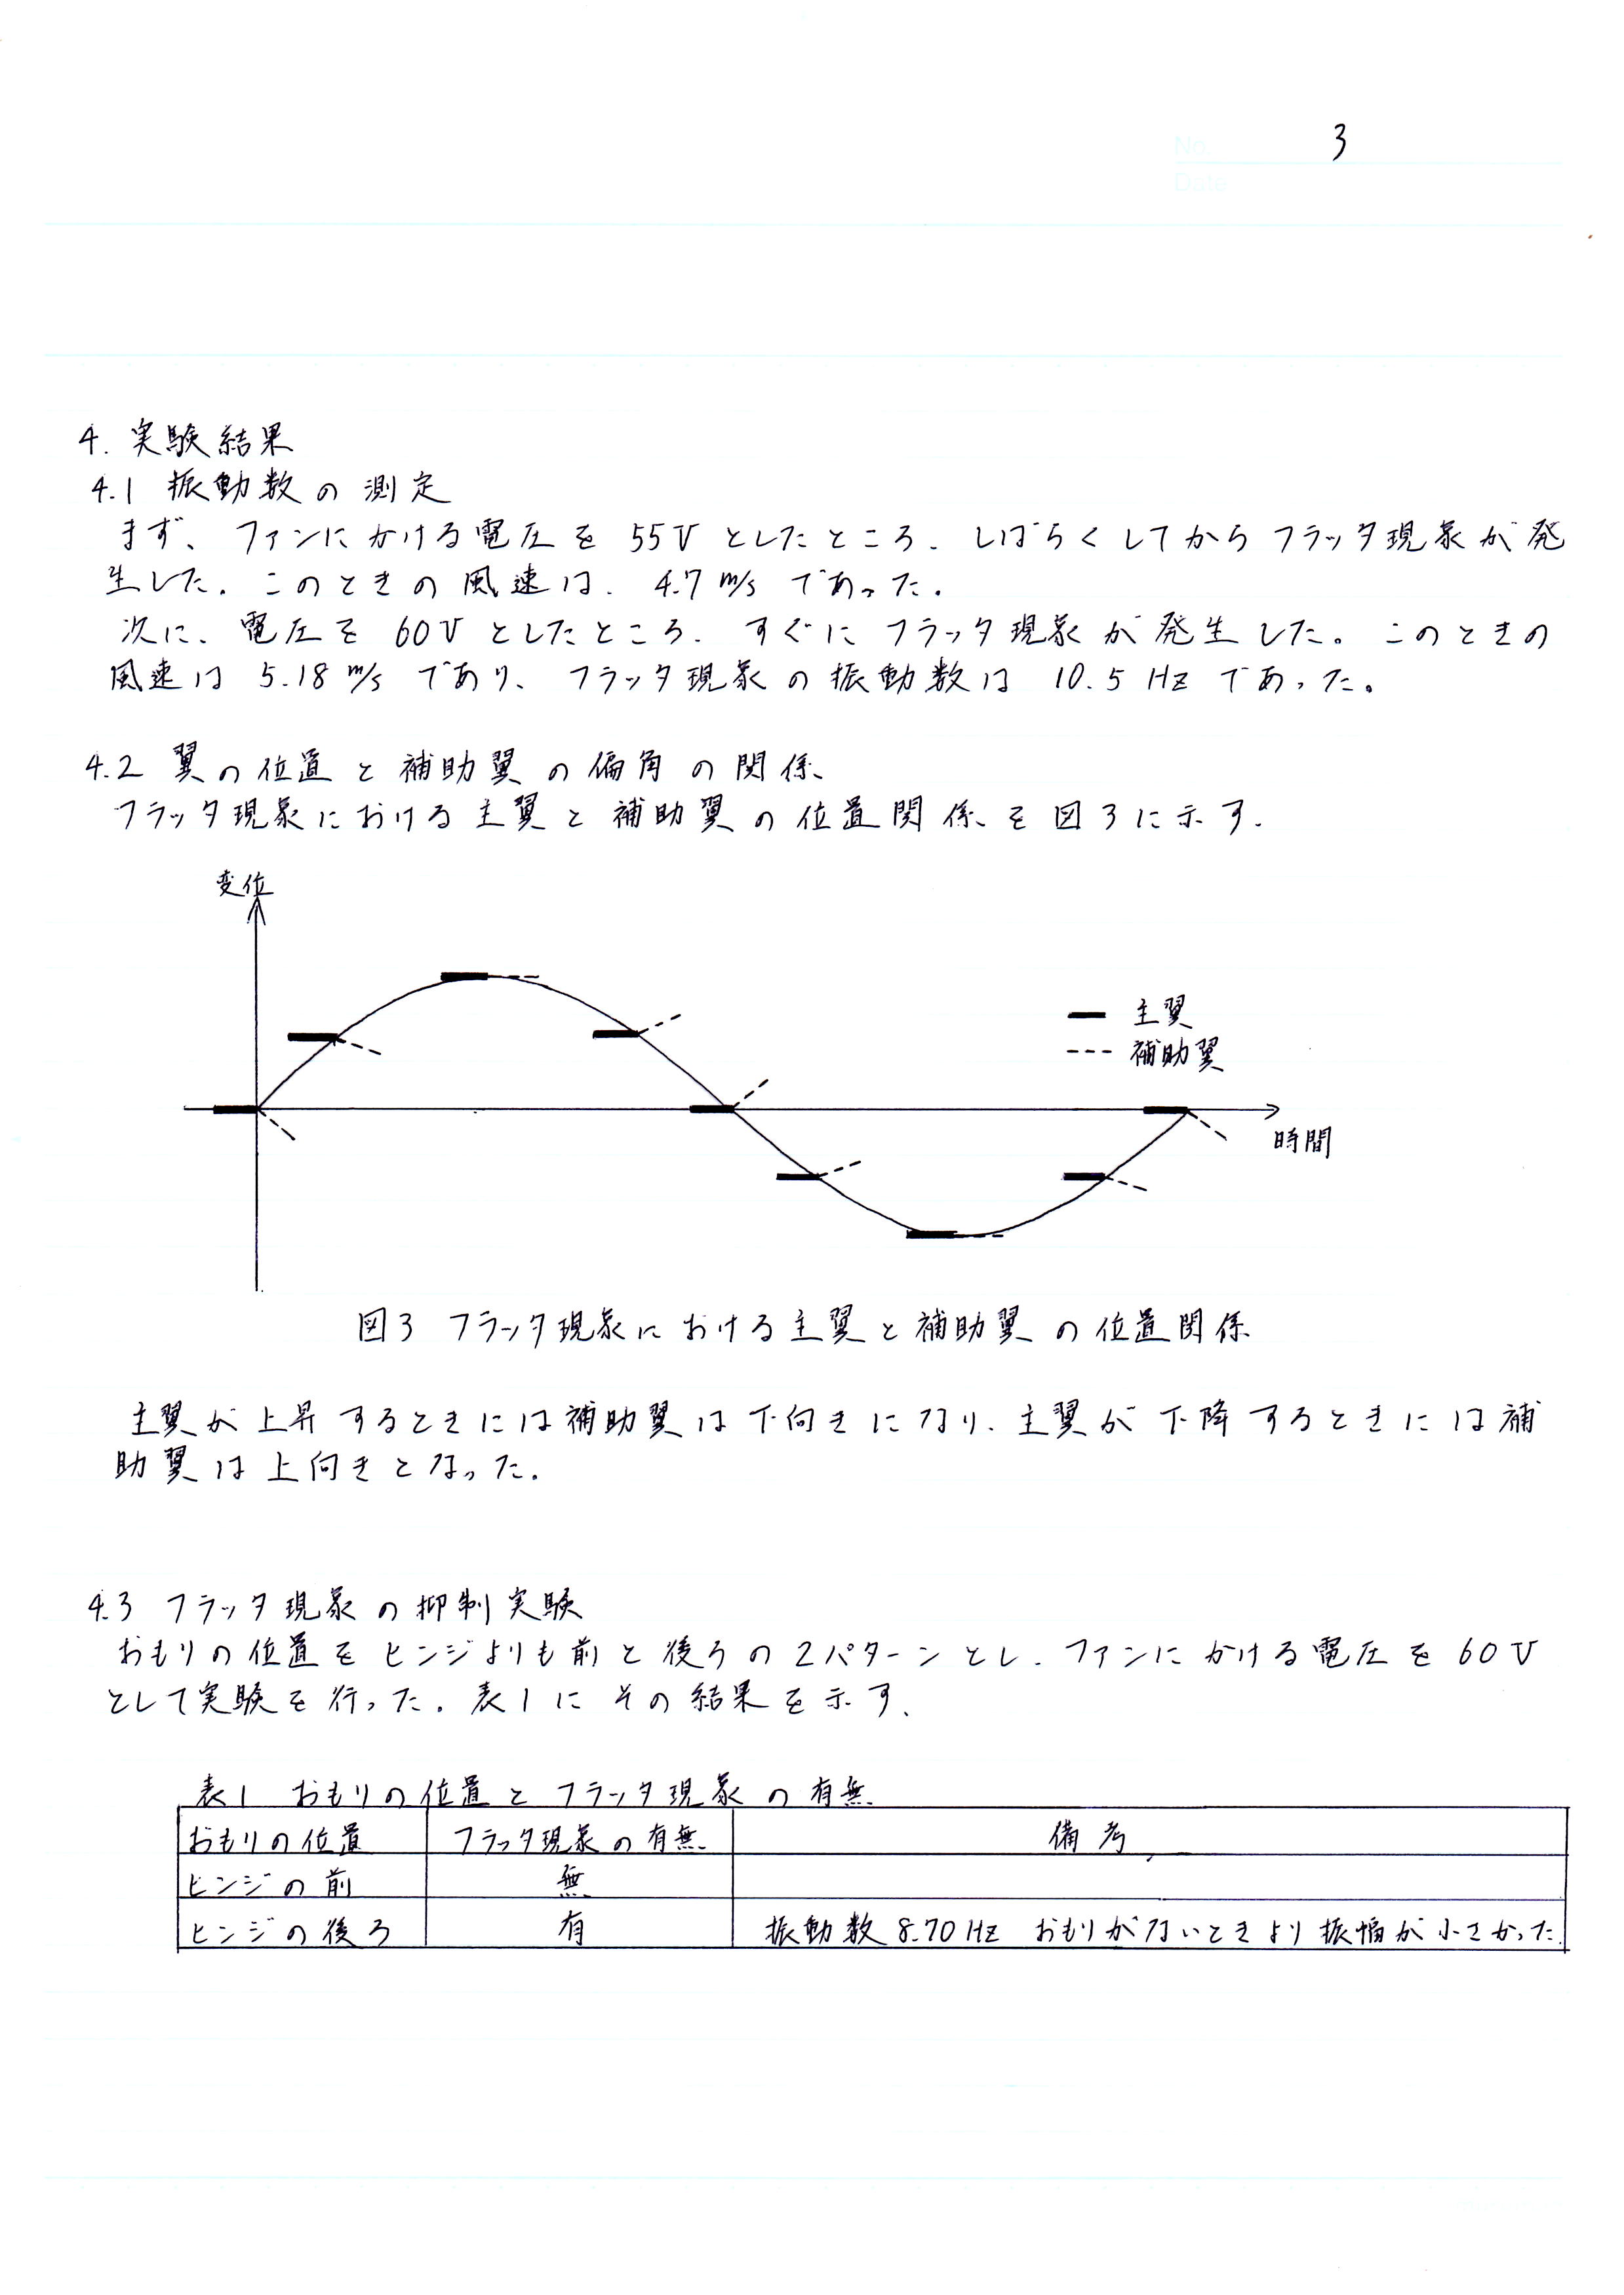 No. 3
Date
4. 実験結果
4.1 振動数の測定
まず、ファンにかける電圧を55Vとしたところ、しばらくしてからフラッタ現象が発
生した。このときの風速は、4.7 m/s であった。
次に、電圧を60Vとしたところ、すぐにフラッタ現象が発生した。このときの
風速は 5.18 m/s であり、フラッタ現象の振動数は 10.5 Hz であった。
4.2 翼の位置と補助翼の偏角の関係
フラッタ現象における主翼と補助翼の位置関係を図3に示す。
変位
主翼
補助翼
時間
図3 フラッタ現象における主翼と補助翼の位置関係
主翼が上昇するときには補助翼は下向きになり、主翼が下降するときには補
助翼は上向きとなった。
4.3 フラッタ現象の抑制実験
おもりの位置をヒンジよりも前と後ろの2パターンとし、ファンにかける電圧を60V
として実験を行った。表1にその結果を示す。
表1 おもりの位置とフラッタ現象の有無
おもりの位置 フラッタ現象の有無 備考
ヒンジの前 無
ヒンジの後ろ 有 振動数 8.70 Hz おもりがないときより振幅が小さかった。